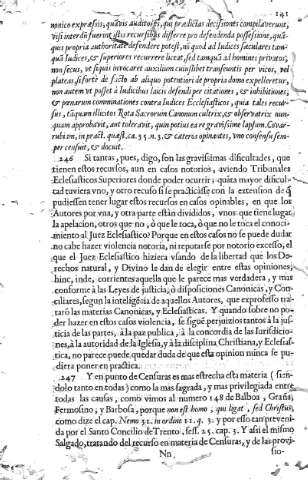 141
nonico expræssis, quavis auditores, qui prædictas decisiones compilaverunt,
visi interdu fuerint istis recursibus differre pro defendenda possessione, quæ
quis propria authoritate defendere potest, ni quod ad Iudices sæculares tan-
quã Iudices, & superiores recurrere liceat, sed tanquã ad homines privatos,
non secus, ut cuipiã invocare auxilium cuiusliber transeuntis per vicos, vel
plateas, si forte de facto ab aliquo potentiori de propria domo expelleretur,
non autem ut possit à Iudicibus laicis defendi per citationes, & inhibitiones,
& pœnarum comminationes contra Iudices Ecclesiasticos, quia tales recur-
sus, etiamque illicitos Rota Sacrorum Canonum cultrix, & observatrix num-
quam approbavit, aut toleravit, quin potius ea re gravissime lapsum. Covar-
rubiam, in pract. quæst. ca. 35. n. 3. & cæteros opinantes, uno consensu sem-
per censuit, & docuit.
246 Si tantas, pues, digo, son las gravissimas dificultades, que
tienen estos recursos, aun en casos notorios, aviendo Tribunales
Eclesiasticos Superiores donde poder ocurrir: quãta mayor dificul-
tad tuviera vno, y otro recuso si se practicasse con la extension de q̃
pudiessen tener lugar estos recursos en casos opinables, en que los
Autores por vna, y otra parte están divididos, vnos que tiene lugar
la apelacion, otros que no, ò que le toca, ò que no le toca el conoci-
miento al Juez Eclesiastico? Porque en estos casos no se puede dudar
no cabe hazer violencia notoria, ni reputarse por notorio excesso, el
que el Juez Eclesiastico hiziera vsando de la libertad que los De-
rechos natural, y Divino la dan de elegir entre estas opiniones,
hinc, inde, corrientes aquella que le parece mas verdadera, y mas
conforme à las Leyes de justicia, ò disposiciones Canonicas, y Con-
ciliares, segun la inteligẽcia de aquellos Autores, que exprofesso tra-
taró las materias Canonicas, y Eclesiasticas. Y quando sobre no po-
der hazer en estos casos violencia, se sigue perjuizio tantos à la jus-
ticia de las partes, à la paz publica, à la concordia de las Jurisdicio-
nes, à la autoridad de la Iglesia, y à la disciplina Christiana, y Eclesias-
tica, no parece puede quedar duda de que esta opinion nunca se pu-
diera poner en practica.
247 Y en punto de Censuras es mas estrecha esta materia (sien-
dolo tanto en todas) como la mas sagrada, y mas privilegiada entre
todas las causas, como vimos al numero 148 de Balboa, Graña,
Fermosino, y Barbosa, porque non est homo, qui ligat, sed Christus,
como dize el cap. Nemo 31. in ordine 11. q. 3. y por esso tan preveni-
da por el Santo Concilio de Trento, sess. 25. cap. 3. Y assi el mismo
Salgado, tratando del recurso en materia de Censuras, y de las provi-
Nn sio-